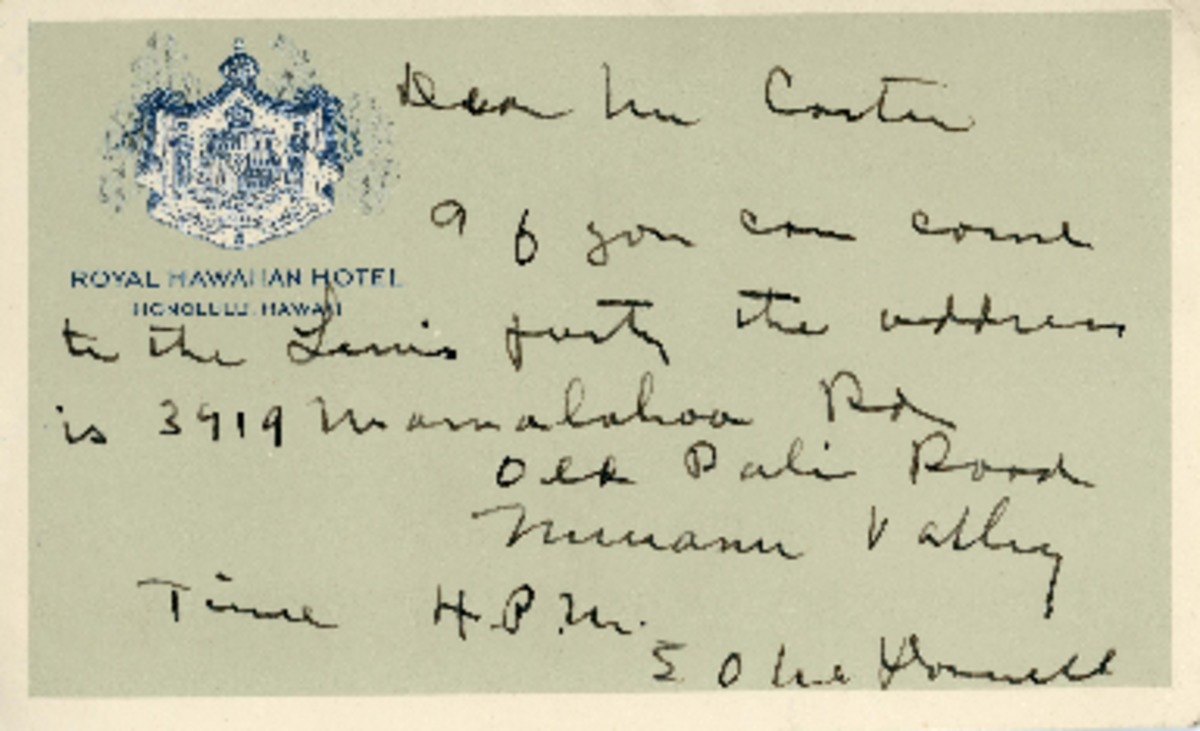 ROYAL HAWAIIAN HOTEL
HONOLULU, HAWAII
Dear Mr Carter
If you can come
to the party the address
is 3919 Mamalahoa Rd
Old Pali Road
Nuuanu Valley
Time 4 P.M.
E O McDonnell